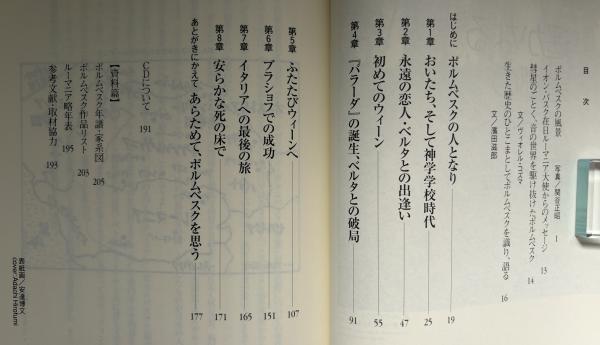 目次
ポルムベスクの風景 写真/関谷正昭 1
イオン・パスク在日ルーマニア大使からのメッセージ 13
彗星のごとく、音の世界を駆け抜けたポルムベスク 14
文/ヴィオレル・コズマ
生きた歴史のひとこまとしてポルムベスクを識り、語る 16
文/濱田滋郎
はじめに ポルムベスクの人となり 19
第1章 おいたち、そして神学学校時代 25
第2章 永遠の恋人・ベルタとの出逢い 47
第3章 初めてのウィーン 55
第4章 『バラーダ』の誕生、ベルタとの破局 91
第5章 ふたたびウィーンへ 107
第6章 ブラショフでの成功 151
第7章 イタリアへの最後の旅 165
第8章 安らかな死の床で 171
あとがきにかえて あらためて、ポルムベスクを思う 177
CDについて 191
【資料篇】
ポルムベスク年譜・家系図 205
ポルムベスク作品リスト 203
ルーマニア略年表 195
参考文献・取材協力 193
表紙画/安達博文
cover: Adachi Hirofumi